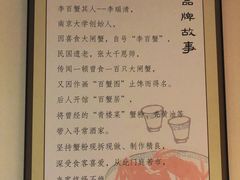 品牌故事
李百蟹其人--李瑞清，
南京大学创始人，
因喜食大闸蟹，自号“李百蟹”，
民国道老，张大千恩师，
传闻一顿曾食一百只大闸蟹，
又因作画“百蟹图”止馋而得名。
后人开馆“百蟹居”，
将曾经的“青楼菜”蟹粉、
带入寻常酒家。
坚持蟹粉现拆现做、制作精良，
深受食客喜爱，从此门庭若市，